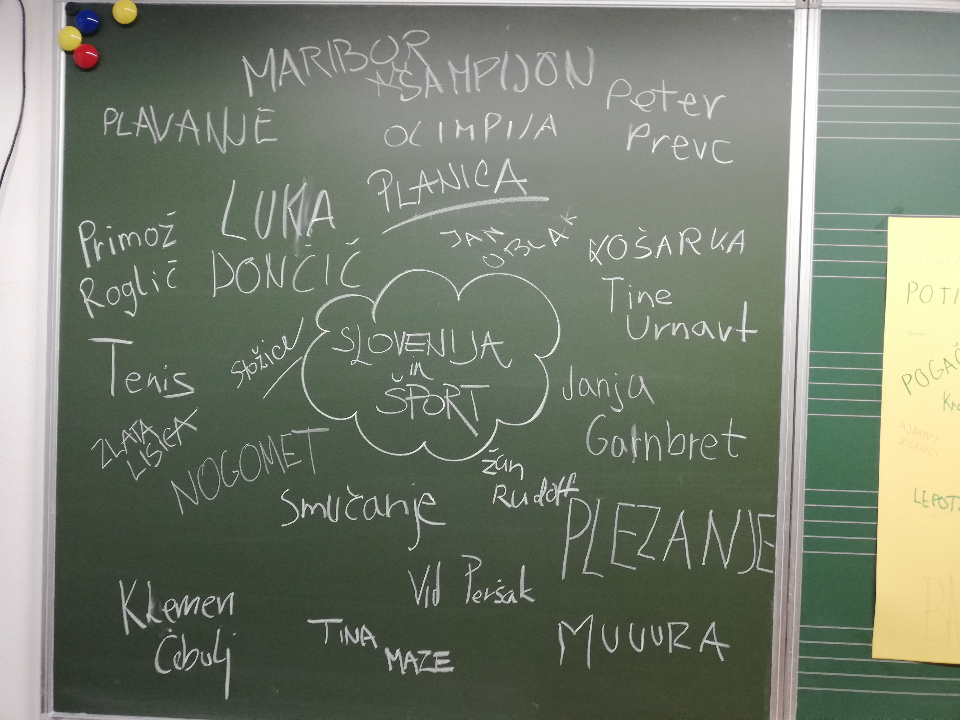 MARIBOR
ŠAMPIJON
PLAVANJE
OLIMPIJA
Peter
Prevc
PLANICA
LUKA
DONČIĆ
Primož
Roglič
JAN
OBLAK
KOŠARKA
Tine
Urnavt
SLOVENIJA
in
ŠPORT
Stožice
Tenis
Janja
Garnbret
ZLATA
LISICA
NOGOMET
žan
Rudolf
Smučanje
PLEZANJE
Vid Peršak
Klemen
Čebulj
TINA
MAZE
MUUURA
POTI
POGAČ
LEPOT